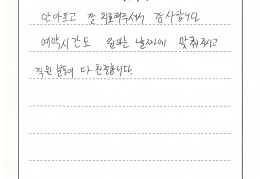 안아프고 잘 치료해주셔서 감사합니다
예약시간도 원하는 날짜에 맞춰주시고
직원 분들이 다 친절합니다.